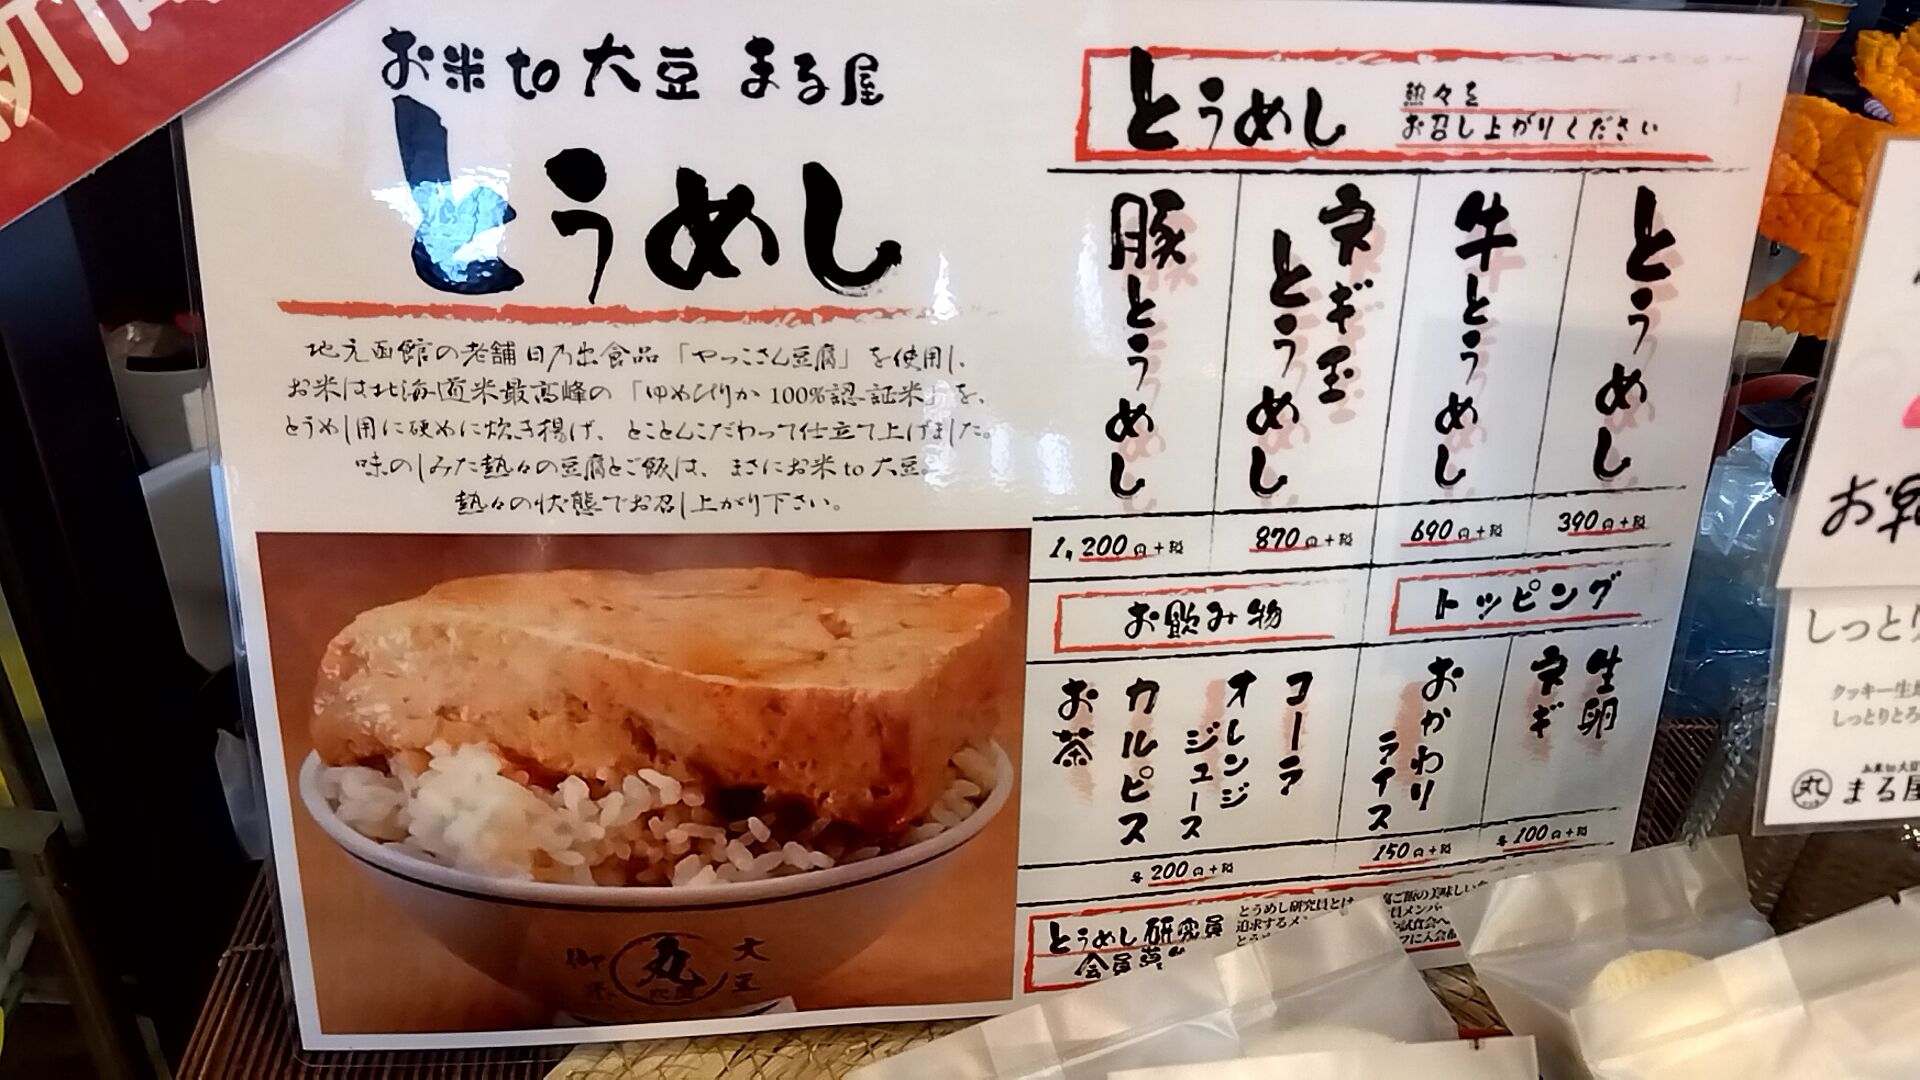 お米to大豆 まる屋
とうめし
地元函館の老舗日乃出食品「やっこさん豆腐」を使用し、
お米は北海道米最高峰の「ゆめぴりか100%認証米」を、
とうめし用に硬めに炊き揚げ、とことんこだわって仕立て上げました。
味のしみた熱々の豆腐とご飯は、まさにお米to大豆。
熱々の状態でお召し上がり下さい。
丸
大豆
とうめし
熱々を
お召し上がりください
とうめし
390円+税
牛とうめし
690円+税
ネギ玉
とうめし
870円+税
豚とうめし
1,200円+税
トッピング
生卵
ネギ
各100円+税
おかわり
ライス
150円+税
お飲み物
コーラ
オレンジ
ジュース
カルピス
お茶
各200円+税
とうめし研究員
会員募
とうめし研究員とは
追求するメ
しっとり
クッキー生
しっとりとろ
お米to大豆
丸 まる屋